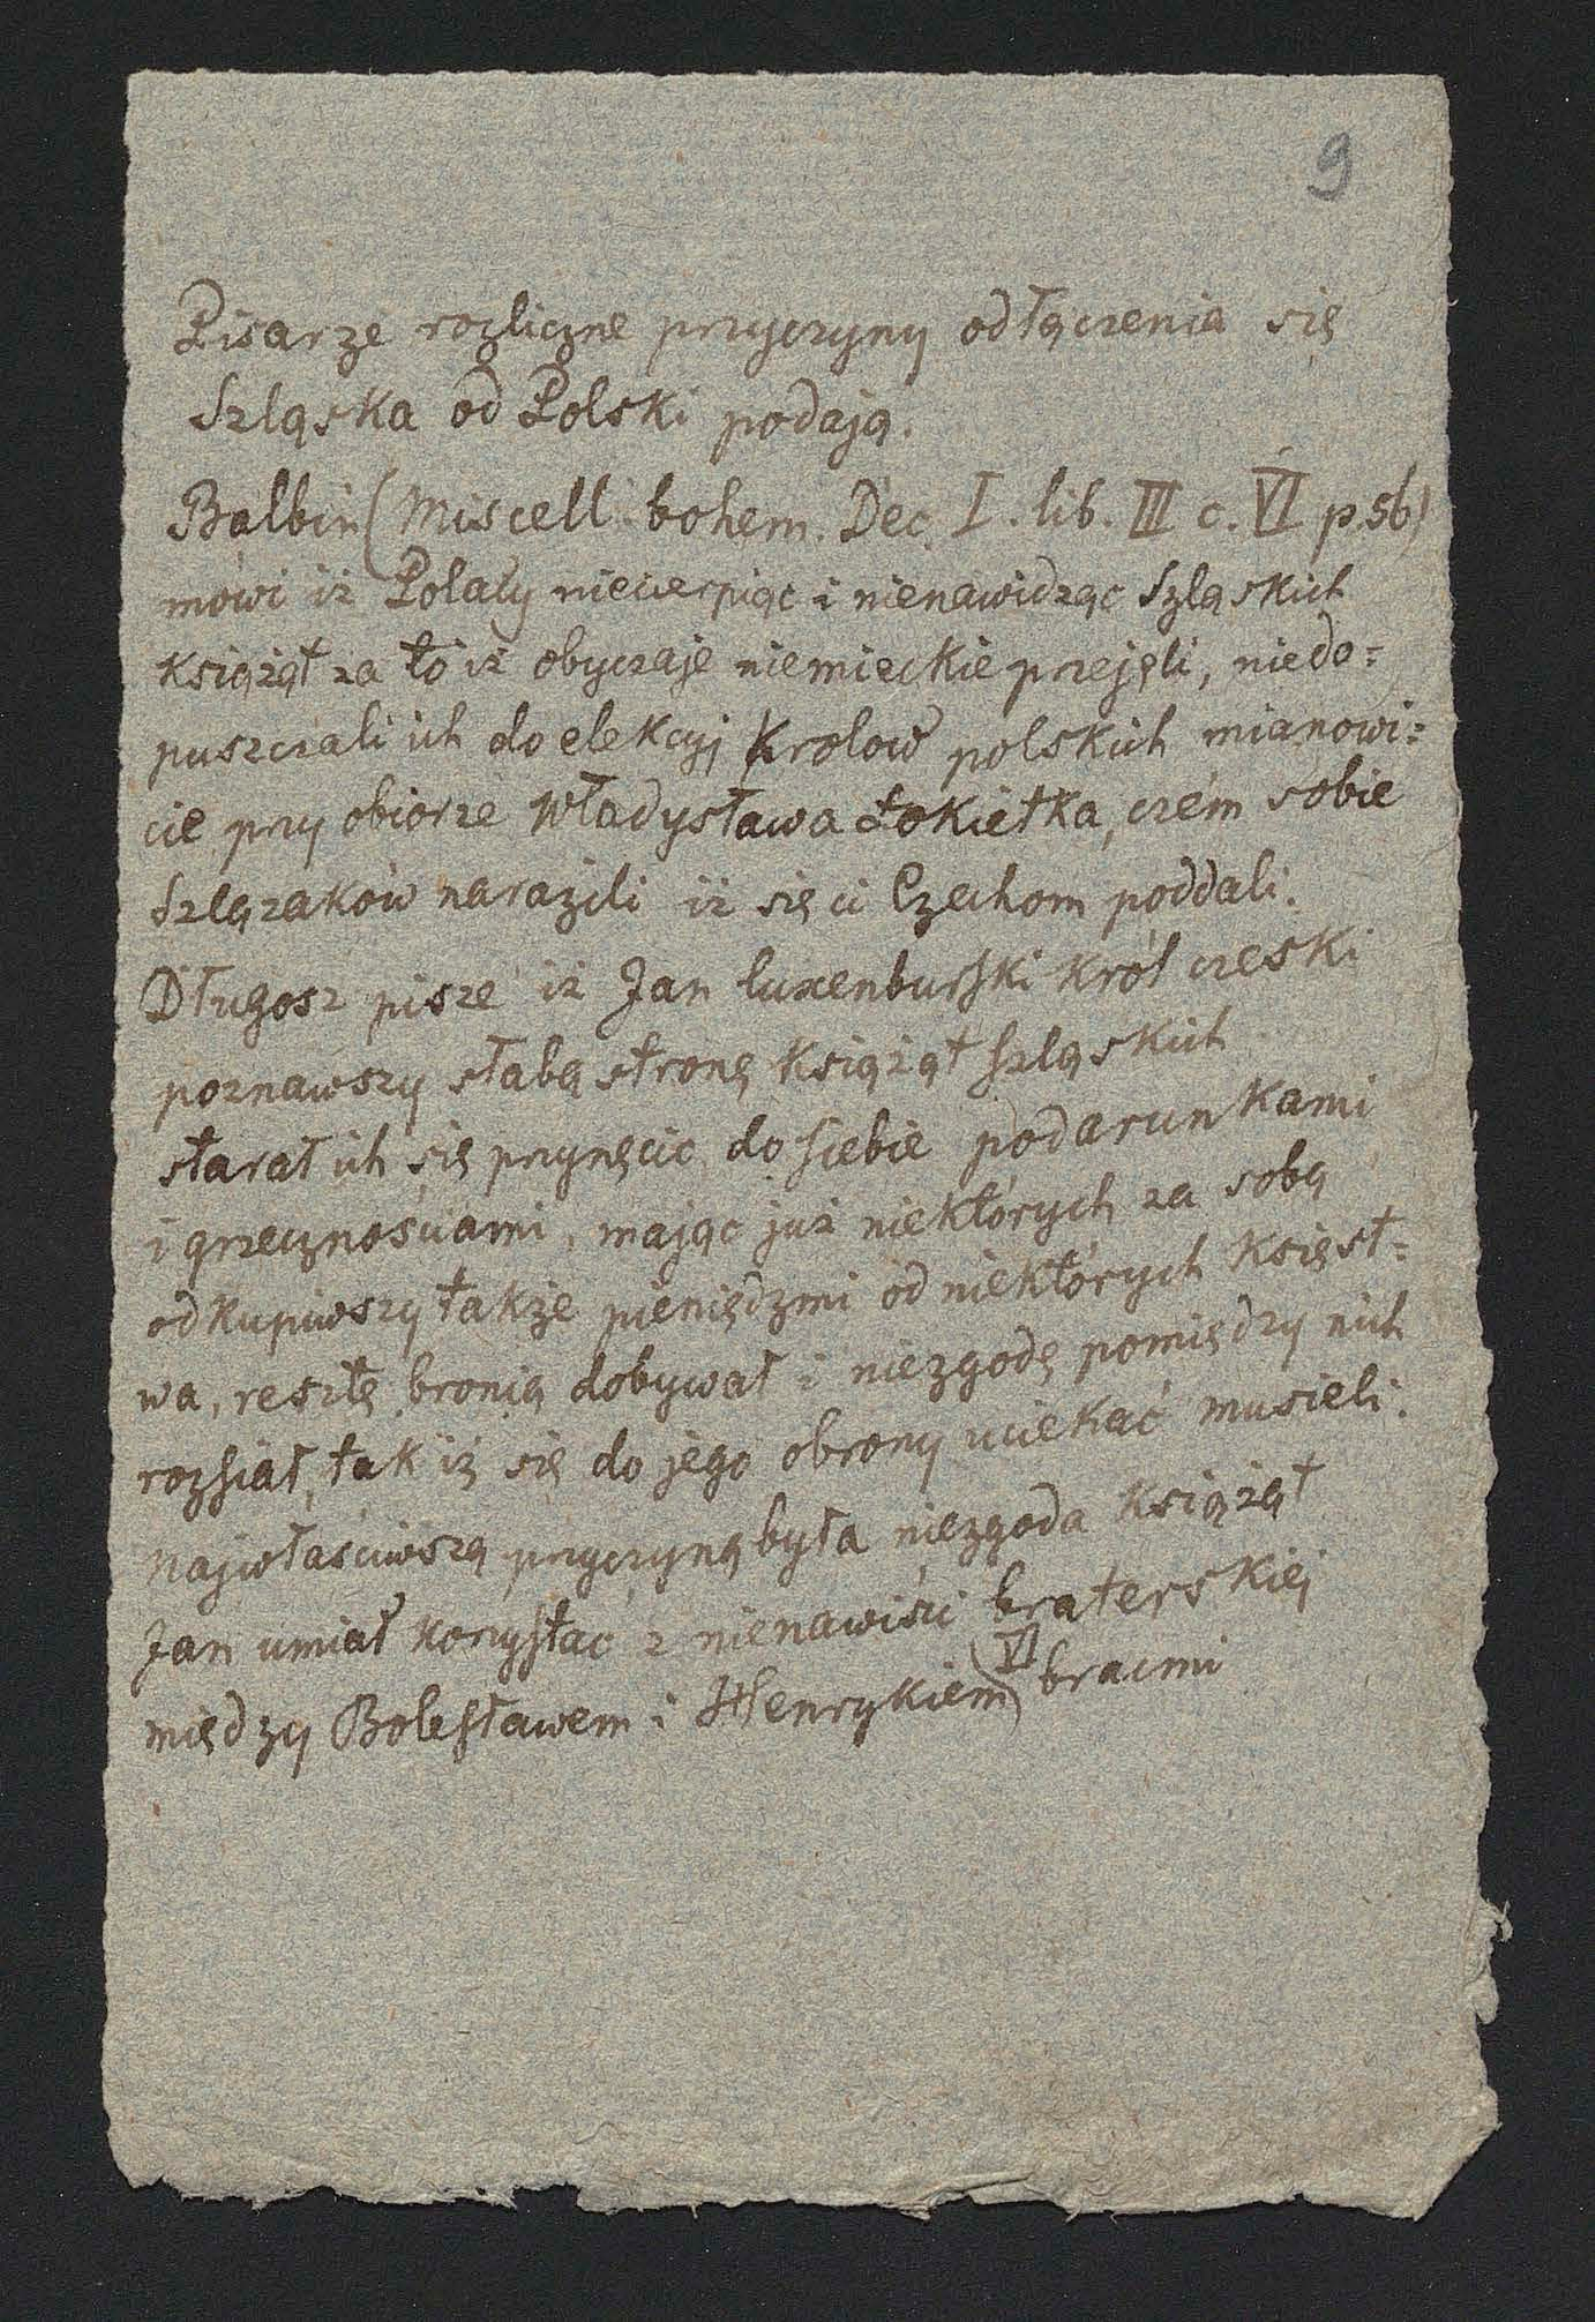 9
Pisarze rozliczne przyczyny odłączenia się
Szląska od Polski podają.
Balbin (Miscell. bohem. Dec. I. lib. III c. VI p. 56)
mówi iż Polacy niecierpiąc i nienawidząc Szląskich
książąt za to iż obyczaje niemieckie przejęli, niedo=
puszczali ich do elekcyj Krolow polskich mianowi=
cie przy obiorze Władysława Łokietka, czém sobie
Szlązaków narazili iż się ci Czechom poddali.
Długosz pisze iż Jan luxenburski Król czeski
poznawszy słabą stronę Książąt szląskich
starał ich się przynęcić do siebie podarunkami
i grzecznościami, mając już niektórych za sobą
odkupiwszy także pieniędzmi od niektórych Księst=
wa, resztę bronią dobywał i niezgodę pomiędzy nich
rozsiał, tak iż się do jego obrony uciekać musieli.
Najwłaściwszą przyczyną była niezgoda Książąt
Jan umiał korzystać z nienawiści braterskiej
między Bolesławem i Henrykiem VI braćmi